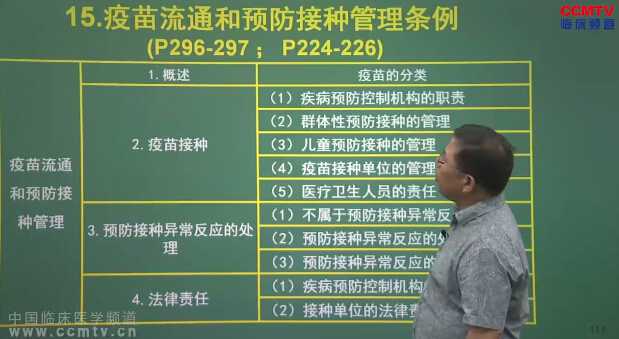 15.疫苗流通和预防接种管理条例
(P296-297 ； P224-226)
CCMTV
临床频道
疫苗流通
和预防接
种管理
1.概述
疫苗的分类
2.疫苗接种
（1）疾病预防控制机构的职责
（2）群体性预防接种的管理
（3）儿童预防接种的管理
（4）疫苗接种单位的管理
（5）医疗卫生人员的责任
3.预防接种异常反应的处
理
（1）不属于预防接种异常反
（2）预防接种异常反应的
（3）预防接种异常反应的
4.法律责任
（1）疾病预防控制机构
（2）接种单位的法律
中国临床医学频道
www.ccmtv.cn